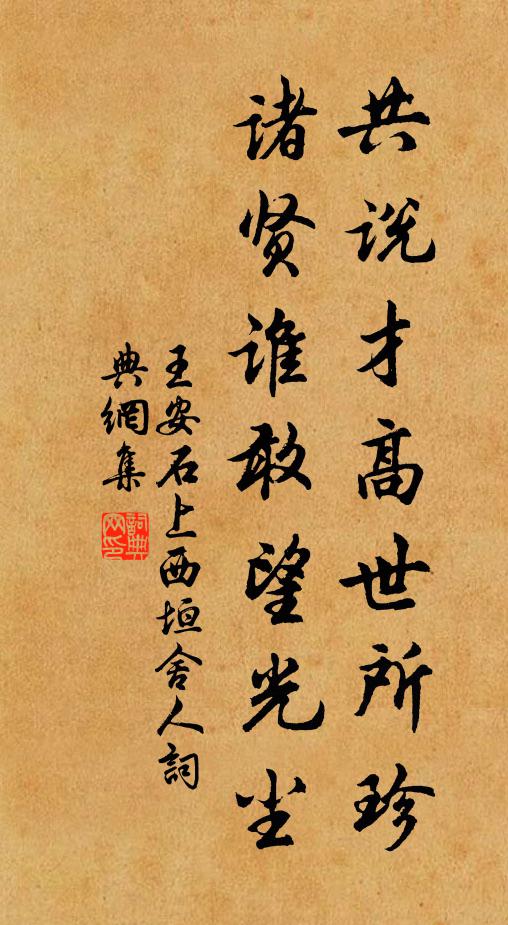 共说才高世所珍
诸贤谁敢望光尘
王安石上西垣舍人詞
典網集
詞典网印